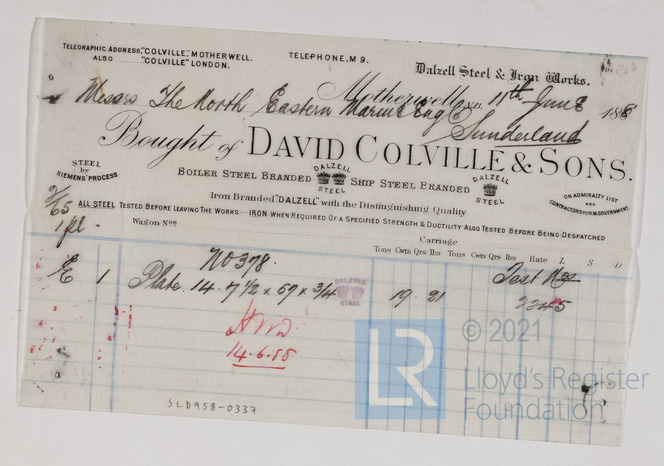 TELEGRAPHIC ADDRESS, "COLVILLE," MOTHERWELL.
ALSO "COLVILLE" LONDON.
TELEPHONE, Nº 9.
Dalzell Steel & Iron Works.
Motherwell, N.B. 11th June 1888
Messrs The North Eastern Marine Eng Co
Sunderland
Bought of DAVID COLVILLE & SONS.
STEEL by SIEMENS' PROCESS
BOILER STEEL BRANDED DALZELL STEEL SHIP STEEL BRANDED DALZELL STEEL
Iron Branded "DALZELL" with the Distinguishing Quality
ON ADMIRALTY LIST AND CONTRACTORS FOR H.M. GOVERNMENT.
2/65
ALL STEEL TESTED BEFORE LEAVING THE WORKS—IRON WHEN REQUIRED OF A SPECIFIED STRENGTH & DUCTILITY ALSO TESTED BEFORE BEING DESPATCHED
1 pl.
Wagon Nos
Carriage
Tons Cwts Qrs lbs Tons Cwts Qrs lbs Rate L S D
No 378.
Test Nos
E 1 Plate 14. 7 1/2 x 69 x 3/4 DALZELL STEEL 19 . 21
2245
14.6.88
SLD958-0337
LR
© 2021
Lloyd's Register
Foundation